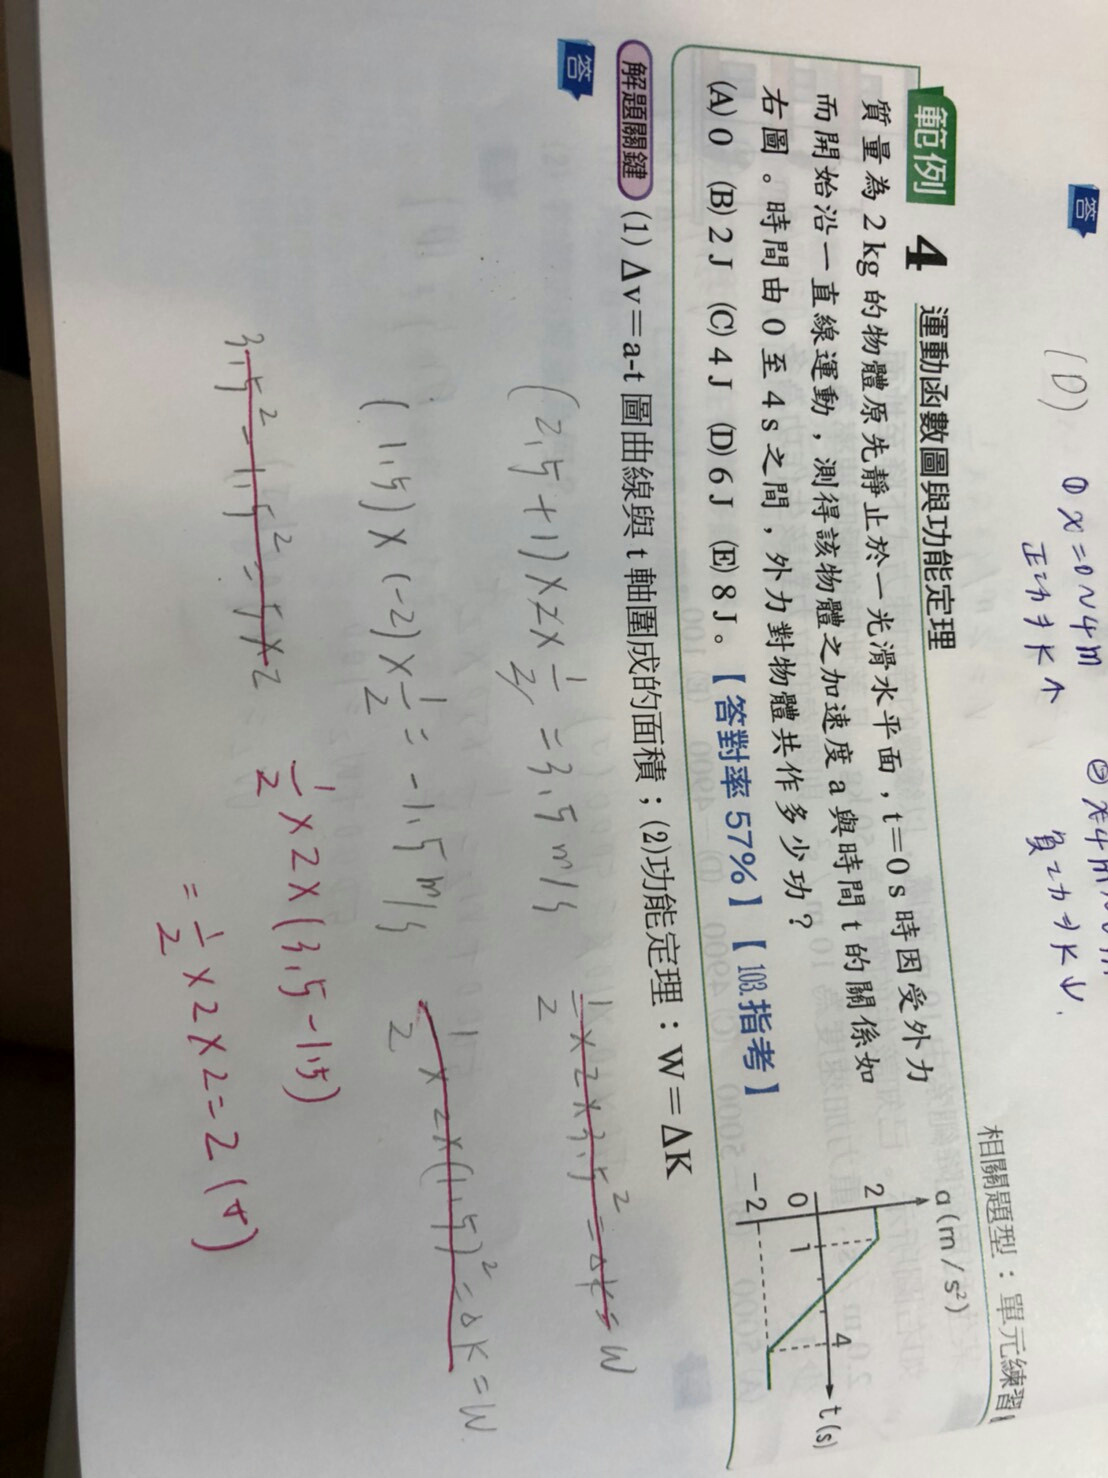 答
(D)
① x=0~4m
正功⇒K↑
② x=4m
負功⇒K↓.
相關題型：單元練習
範例 4 運動函數圖與功能定理
質量為 2 kg 的物體原先靜止於一光滑水平面，t＝0 s 時因受外力
而開始沿一直線運動，測得該物體之加速度 a 與時間 t 的關係如
右圖。時間由 0 至 4 s 之間，外力對物體共作多少功？
(A) 0 (B) 2 J (C) 4 J (D) 6 J (E) 8 J。【答對率 57%】【103.指考】
a (m / s²)
2
0
1
4
t (s)
－2
解題關鍵 (1) Δv＝a-t 圖曲線與 t 軸圍成的面積；(2)功能定理：W＝ΔK
答
(2.5+1)×2×1/2=3.5m/s
1/2×2×3.5²=ΔK=W
(1.5)×(-2)×1/2=-1.5m/s
1/2×2×(1.5)²=ΔK=W
3.5²-1.5²=5×2
1/2×2×(3.5-1.5)
=1/2×2×2=2(J)